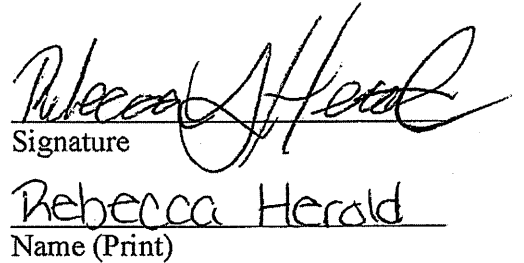 Rebecca J Herold
Signature
Rebecca Herold
Name (Print)